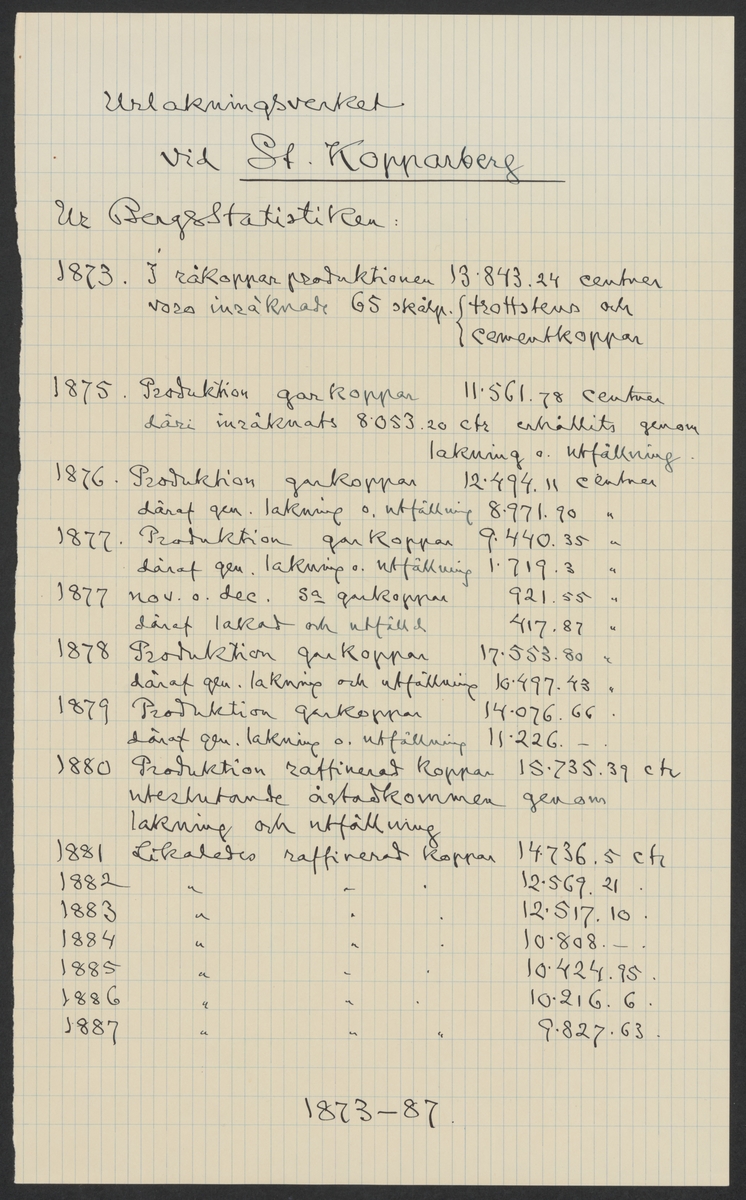 Urlakningsverket
vid St. Kopparberg
Ur BergsStatistiken:
1873. I råkopparproduktionen 13.843.24 centner
voro inräknade 65 skålp. { trottstens och
{ cementkoppar
1875. Produktion garkoppar 11.561.78 centner
däri inräknats 8.053.20 ctr erhållits genom
lakning o. utfällning.
1876. Produktion garkoppar 12.494.11 centner
däraf gen. lakning o. utfällning 8.971.90 "
1877. Produktion garkoppar 9.440.35 "
däraf gen. lakning o. utfällning 1.719.3 "
1877 nov. o. dec. Sa garkoppar 921.55 "
däraf lakad och utfälld 417.87 "
1878 Produktion garkoppar 17.553.80 "
däraf gen. lakning och utfällning 16.497.43 "
1879 Produktion garkoppar 14.076.66 .
däraf gen. lakning o. utfällning 11.226. – .
1880 Produktion raffinerad koppar 15.735.39 ctr
uteslutande åstadkommen genom
lakning och utfällning
1881 Likaledes raffinerad koppar 14.736.5 ctr
1882 " " . 12.569.21 .
1883 " " . 12.517.10 .
1884 " " . 10.808. – .
1885 " " . 10.424.95 .
1886 " " . 10.216.6 .
1887 " " " 9.827.63 .
1873–87.